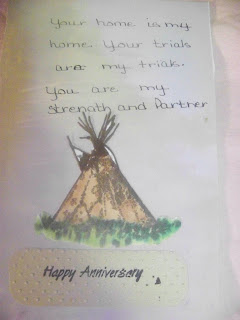 Your home is my
home. Your trials
are my trials.
You are my
strength and Partner
Happy Anniversary